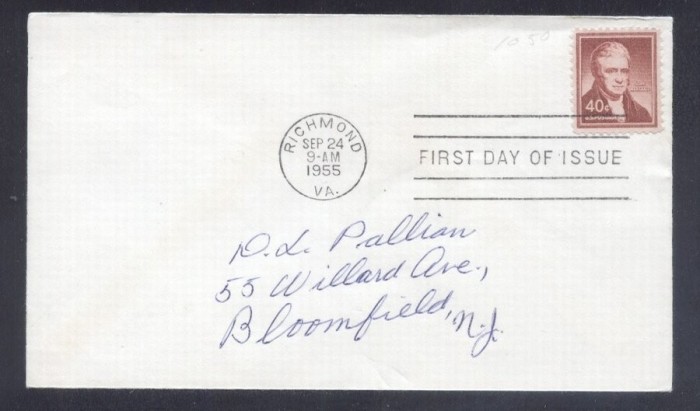 10 50
40¢
RICHMOND
SEP 24
9-AM
1955
VA.
FIRST DAY OF ISSUE
D. L. Pallian
55 Willard Ave.,
Bloomfield, N.J.